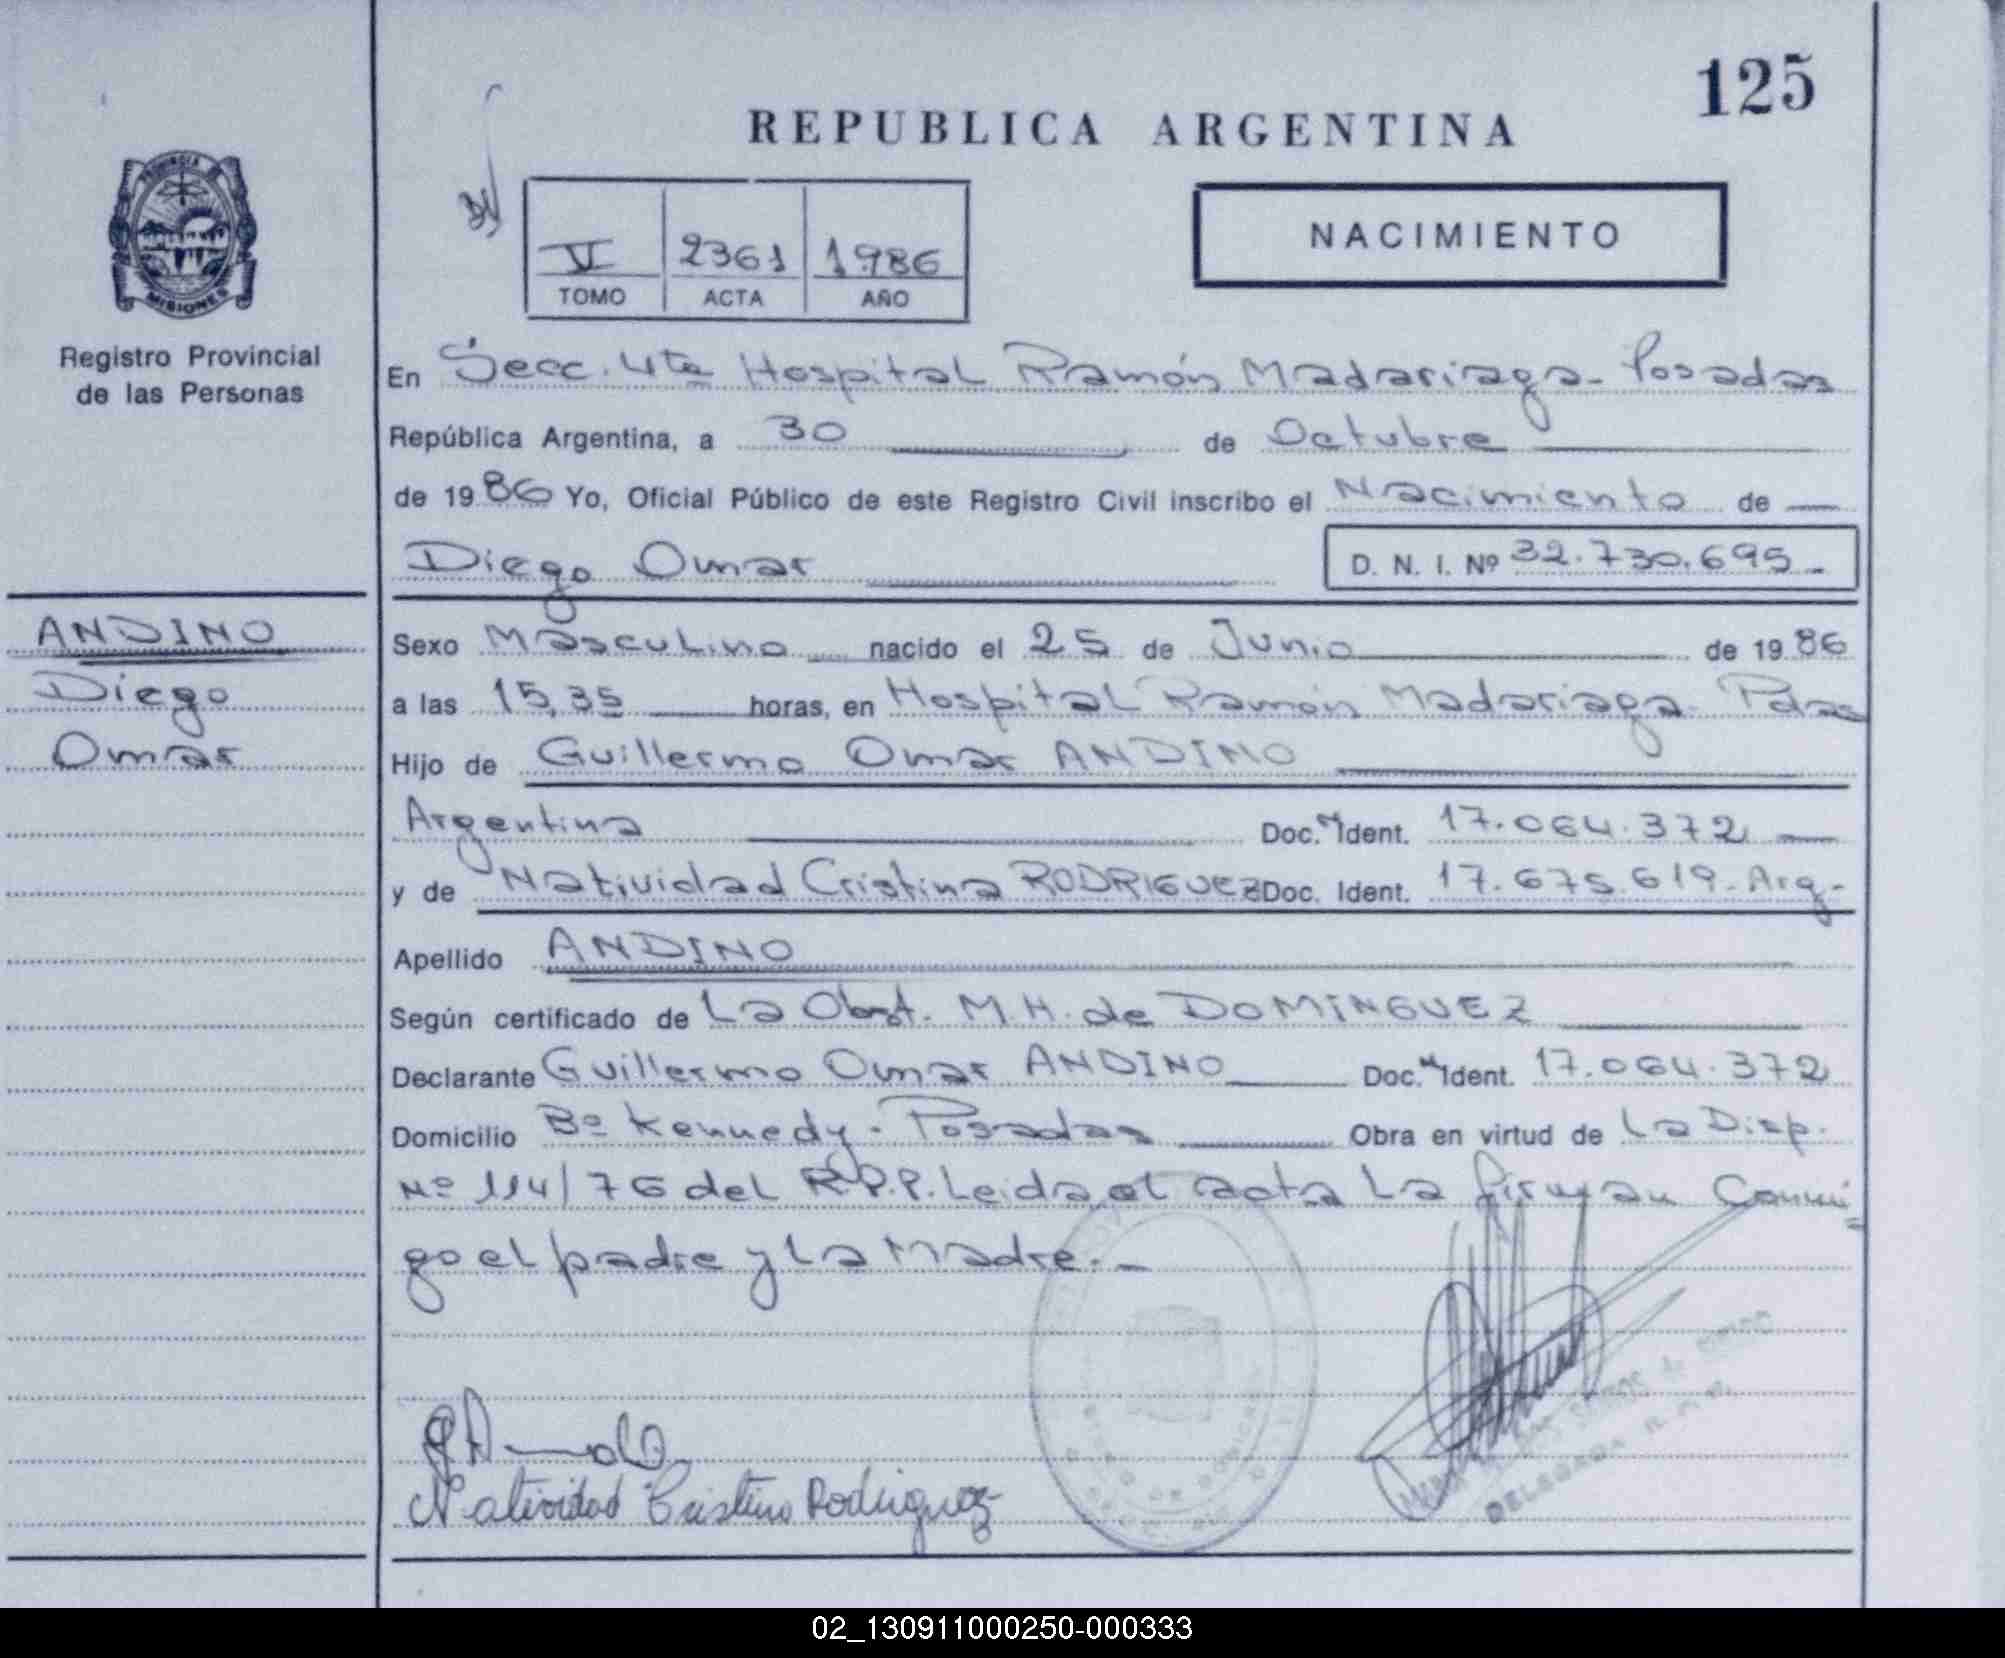 125
REPUBLICA ARGENTINA
PROVINCIA DE
MISIONES
Registro Provincial
de las Personas
V 2361 1986
TOMO ACTA AÑO
NACIMIENTO
En Secc. 4ta Hospital Ramón Madariaga - Posadas
República Argentina, a 30 de Octubre
de 1986 Yo, Oficial Público de este Registro Civil inscribo el Nacimiento de
Diego Omar D. N. I. Nº 32.730.695.-
ANDINO
Diego
Omar
Sexo Masculino nacido el 25 de Junio de 1986
a las 15,35 horas, en Hospital Ramón Madariaga - Pdas
Hijo de Guillermo Omar ANDINO
Argentina Doc. Ident. 17.064.372
y de Natividad Cristina RODRIGUEZ Doc. Ident. 17.675.619 - Arg.-
Apellido ANDINO
Según certificado de La Obst. M.H. de DOMINGUEZ
Declarante Guillermo Omar ANDINO Doc. Ident. 17.064.372
Domicilio Bº Kennedy - Posadas Obra en virtud de La Disp.
Nº 114/76 del R.P.P. Leida el acta La firman Conmi-
go el padre y La Madre.-
Natividad Cristina Rodriguez
DELEGADA
02_130911000250-000333